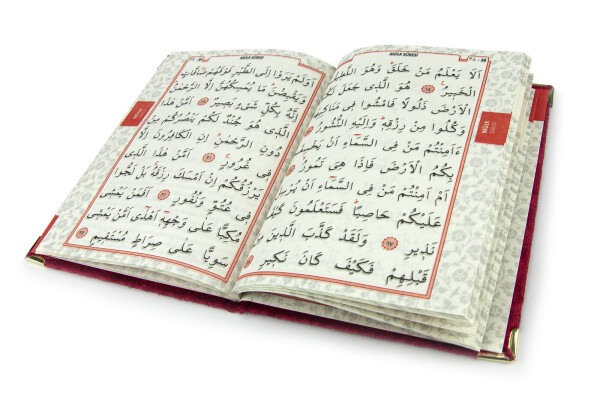 ٣٨ - 38
MÜLK SÛRESİ
اَلَا يَعْلَمُ مَنْ خَلَقَ وَهُوَ اللَّط۪يفُ
الْخَب۪يرُ ﴿١٤﴾ هُوَ الَّذ۪ي جَعَلَ لَكُمُ
الْاَرْضَ ذَلُولًا فَامْشُوا ف۪ي مَنَاكِبِهَا
وَكُلُوا مِنْ رِزْقِه۪ وَاِلَيْهِ النُّشُورُ ﴿١٥﴾
ءَاَمِنْتُمْ مَنْ فِي السَّمَٓاءِ اَنْ يَخْسِفَ
بِكُمُ الْاَرْضَ فَاِذَا هِيَ تَمُورُ ﴿١٦﴾
اَمْ اَمِنْتُمْ مَنْ فِي السَّمَٓاءِ اَنْ يُرْسِلَ
عَلَيْكُمْ حَاصِبًا فَسَتَعْلَمُونَ كَيْفَ
نَذ۪يرِ ﴿١٧﴾ وَلَقَدْ كَذَّبَ الَّذ۪ينَ مِنْ
قَبْلِهِمْ فَكَيْفَ كَانَ نَك۪يرِ ﴿١٨﴾
MÜLK
SÛRESİ
MÜLK SÛRESİ
اَوَلَمْ يَرَوْا اِلَى الطَّيْرِ فَوْقَهُمْ صَٓافَّاتٍ
وَيَقْبِضْنَ مَا يُمْسِكُهُنَّ اِلَّا الرَّحْمٰنُ
اِنَّهُ بِكُلِّ شَيْءٍ بَص۪يرٌ ﴿١٩﴾ اَمَّنْ هٰذَا
الَّذ۪ي هُوَ جُنْدٌ لَكُمْ يَنْصُرُكُمْ مِنْ
دُونِ الرَّحْمٰنِ اِنِ الْكَافِرُونَ اِلَّا
ف۪ي غُرُورٍ ﴿٢٠﴾ اَمَّنْ هٰذَا الَّذ۪ي
يَرْزُقُكُمْ اِنْ اَمْسَكَ رِزْقَهُ بَلْ لَجُّوا
ف۪ي عُتُوٍّ وَنُفُورٍ ﴿٢١﴾ اَفَمَنْ يَمْش۪ي
مُكِبًّا عَلٰى وَجْهِه۪ٓ اَهْدٰٓى اَمَّنْ يَمْش۪ي
سَوِيًّا عَلٰى صِرَاطٍ مُسْتَق۪يمٍ ﴿٢٢﴾